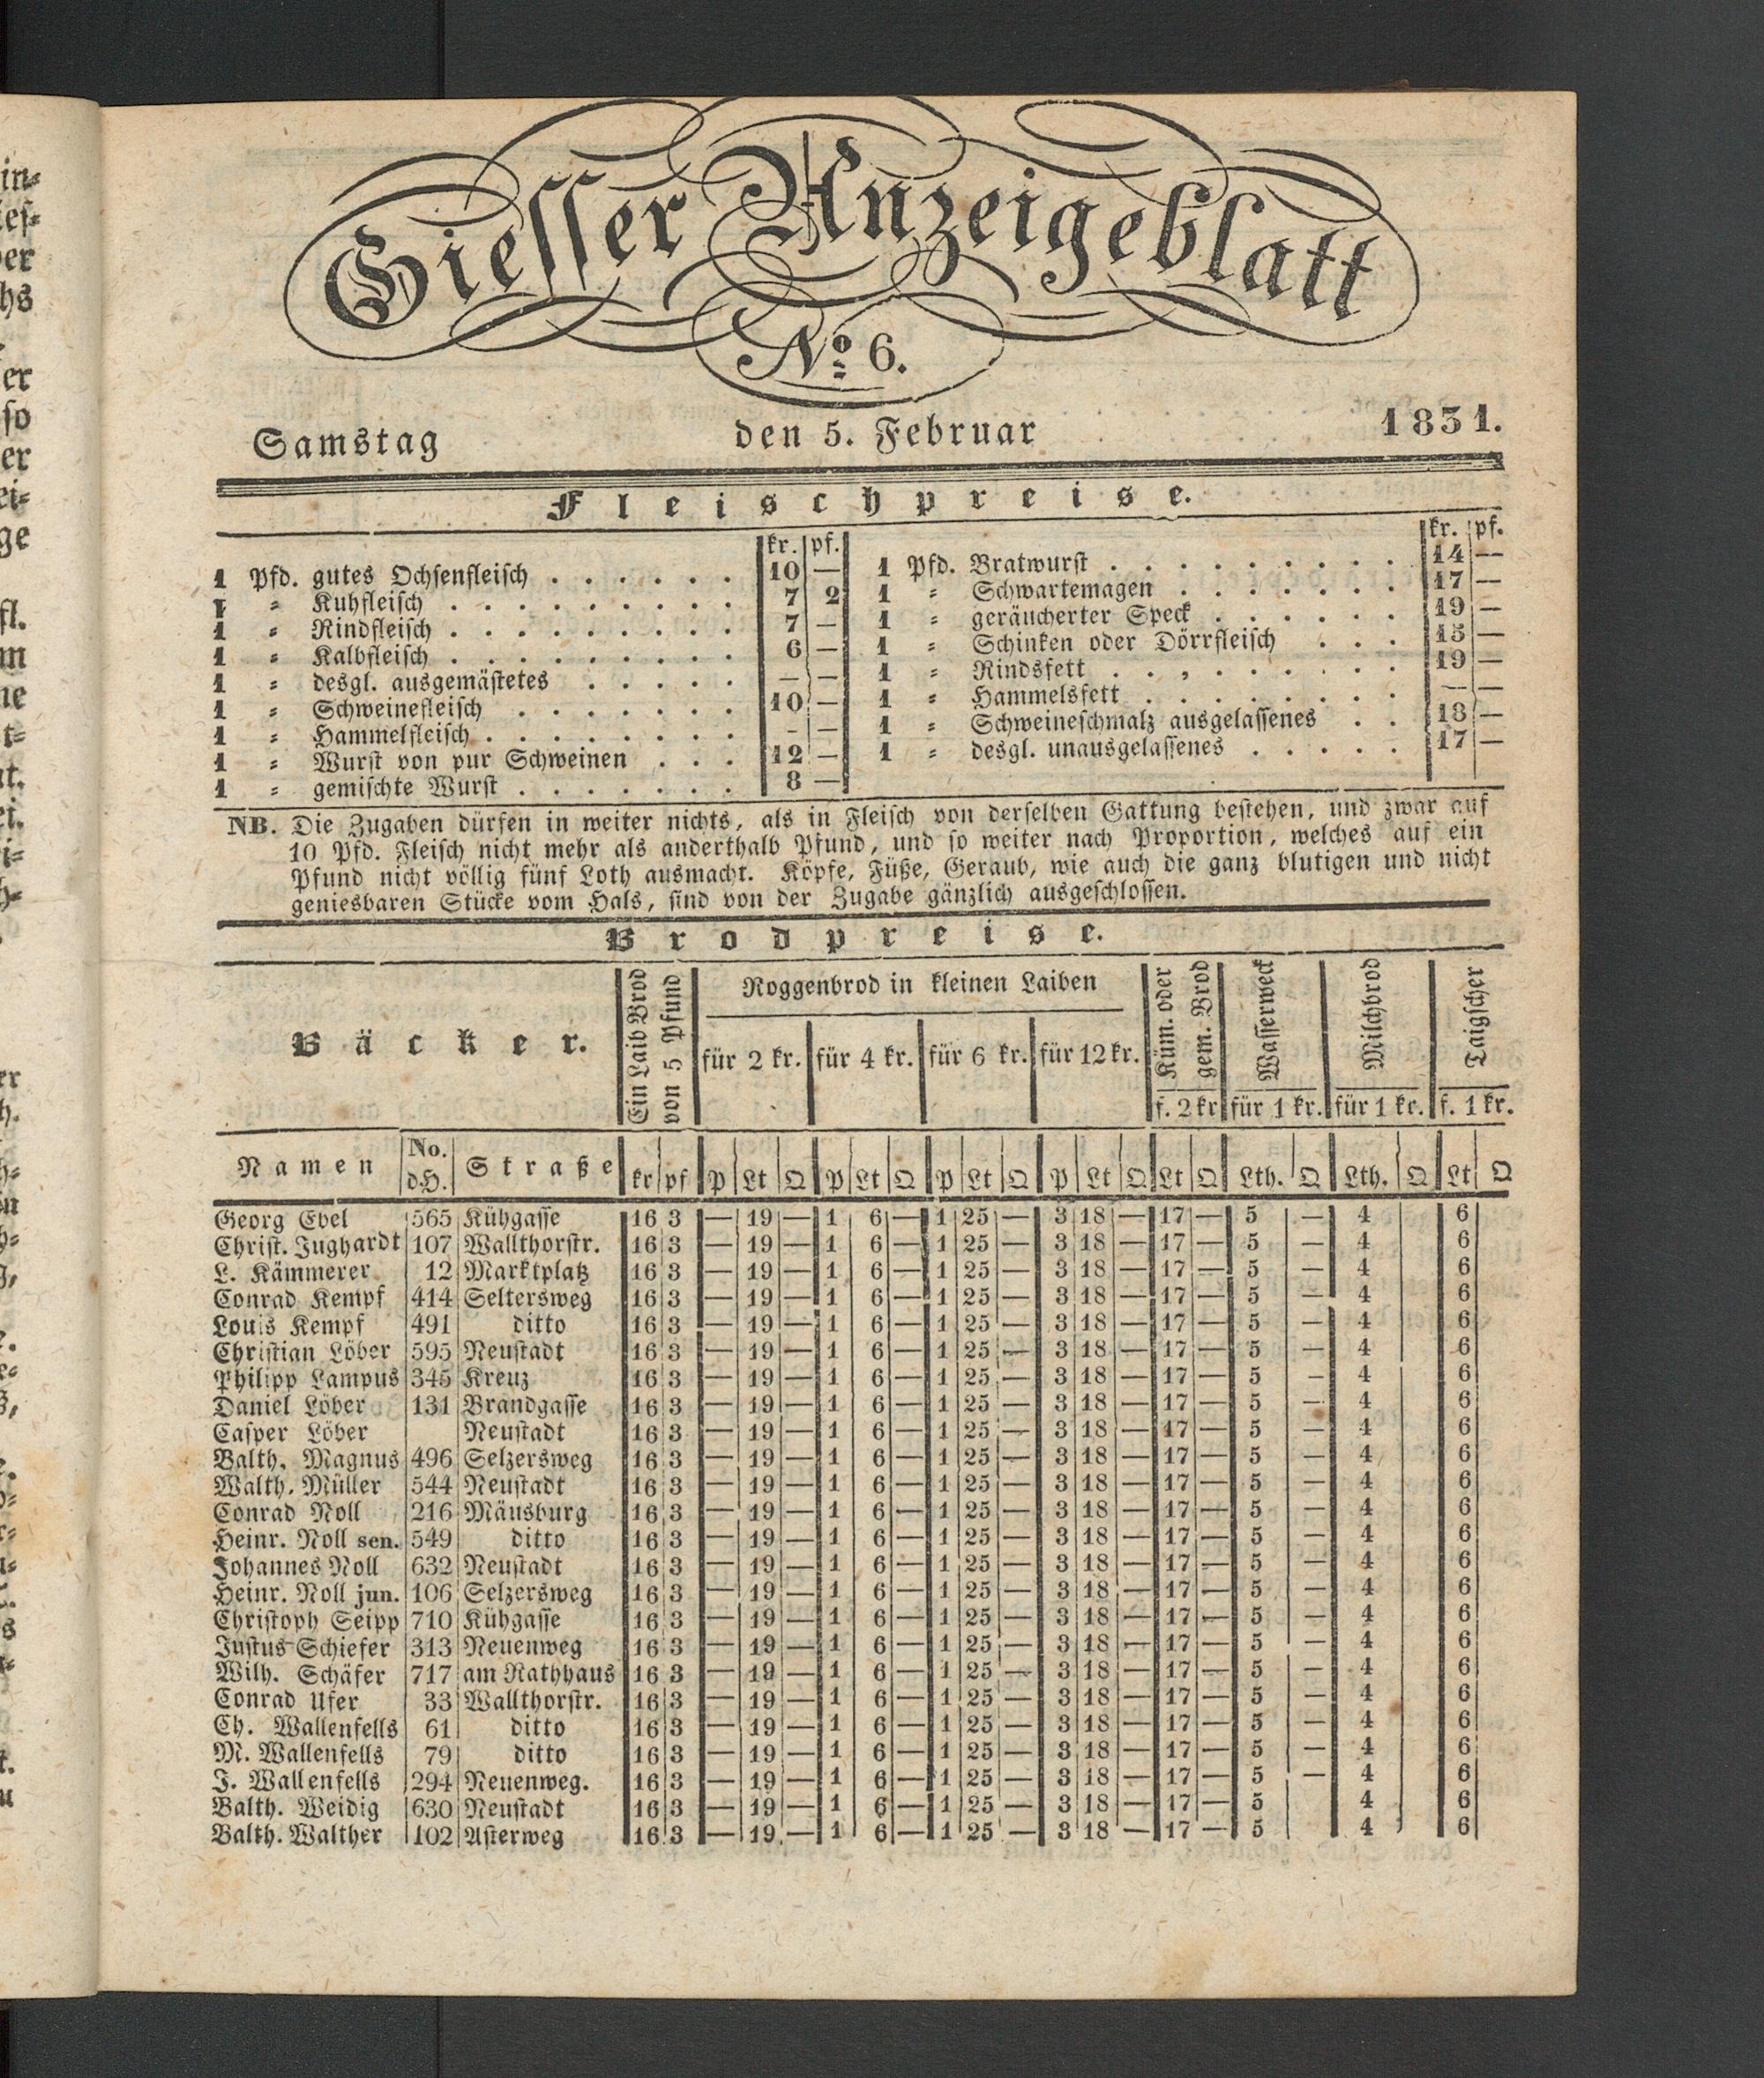 Giesser Anzeigeblatt
No. 6.
Samstag den 5. Februar 1831.
Fleischpreise.
kr. pf.
1 Pfd. gutes Ochsenfleisch . . . . . . 10 —
1 = Kuhfleisch . . . . . . . . . 7 2
1 = Rindfleisch . . . . . . . . . 7 —
1 = Kalbfleisch . . . . . . . . . 6 —
1 = desgl. ausgemästetes . . . . . — —
1 = Schweinefleisch . . . . . . . 10 —
1 = Hammelfleisch . . . . . . . . - —
1 = Wurst von pur Schweinen . . . 12 —
1 = gemischte Wurst . . . . . . . 8 —
kr. pf.
1 Pfd. Bratwurst . . . . . . . . . 14 —
1 = Schwartemagen . . . . . . . 17 —
1 = geräucherter Speck . . . . . . 19 —
1 = Schinken oder Dörrfleisch . . . 15 —
1 = Rindsfett . . . . . . . . . 19 —
1 = Hammelsfett . . . . . . . . — —
1 = Schweineschmalz ausgelassenes . . 18 —
1 = desgl. unausgelassenes . . . . . 17 —
NB. Die Zugaben dürfen in weiter nichts, als in Fleisch von derselben Gattung bestehen, und zwar auf
10 Pfd. Fleisch nicht mehr als anderthalb Pfund, und so weiter nach Proportion, welches auf ein
Pfund nicht völlig fünf Loth ausmacht. Köpfe, Füße, Geraub, wie auch die ganz blutigen und nicht
geniesbaren Stücke vom Hals, sind von der Zugabe gänzlich ausgeschlossen.
Brodpreise.
Bäcker.
Ein Laib Brod
von 5 Pfund
Roggenbrod in kleinen Laiben
für 2 kr. für 4 kr. für 6 kr. für 12 kr.
Küm. oder
gem. Brod
f. 2 kr
Wasserweck
für 1 kr.
Milchbrod
für 1 kr.
Taigscher
f. 1 kr.
Namen No. d.H. Straße kr pf P Lt Q P Lt Q P Lt Q P Lt Q Lt Q Lth. Q Lth. Q Lt Q
Georg Ebel 565 Kühgasse 16 3 — 19 — 1 6 — 1 25 — 3 18 — 17 — 5 — 4 6
Christ. Jughardt 107 Wallthorstr. 16 3 — 19 — 1 6 — 1 25 — 3 18 — 17 — 5 — 4 6
L. Kämmerer 12 Marktplatz 16 3 — 19 — 1 6 — 1 25 — 3 18 — 17 — 5 — 4 6
Conrad Kempf 414 Seltersweg 16 3 — 19 — 1 6 — 1 25 — 3 18 — 17 — 5 — 4 6
Louis Kempf 491 ditto 16 3 — 19 — 1 6 — 1 25 — 3 18 — 17 — 5 — 4 6
Christian Löber 595 Neustadt 16 3 — 19 — 1 6 — 1 25 — 3 18 — 17 — 5 — 4 6
Philipp Lampus 345 Kreuz 16 3 — 19 — 1 6 — 1 25 — 3 18 — 17 — 5 — 4 6
Daniel Löber 131 Brandgasse 16 3 — 19 — 1 6 — 1 25 — 3 18 — 17 — 5 — 4 6
Casper Löber Neustadt 16 3 — 19 — 1 6 — 1 25 — 3 18 — 17 — 5 — 4 6
Balth. Magnus 496 Selzersweg 16 3 — 19 — 1 6 — 1 25 — 3 18 — 17 — 5 — 4 6
Walth. Müller 544 Neustadt 16 3 — 19 — 1 6 — 1 25 — 3 18 — 17 — 5 — 4 6
Conrad Noll 216 Mäusburg 16 3 — 19 — 1 6 — 1 25 — 3 18 — 17 — 5 — 4 6
Heinr. Noll sen. 549 ditto 16 3 — 19 — 1 6 — 1 25 — 3 18 — 17 — 5 — 4 6
Johannes Noll 632 Neustadt 16 3 — 19 — 1 6 — 1 25 — 3 18 — 17 — 5 — 4 6
Heinr. Noll jun. 106 Selzersweg 16 3 — 19 — 1 6 — 1 25 — 3 18 — 17 — 5 — 4 6
Christoph Seipp 710 Kühgasse 16 3 — 19 — 1 6 — 1 25 — 3 18 — 17 — 5 — 4 6
Justus Schiefer 313 Neuenweg 16 3 — 19 — 1 6 — 1 25 — 3 18 — 17 — 5 — 4 6
Wilh. Schäfer 717 am Rathhaus 16 3 — 19 — 1 6 — 1 25 — 3 18 — 17 — 5 — 4 6
Conrad Ufer 33 Wallthorstr. 16 3 — 19 — 1 6 — 1 25 — 3 18 — 17 — 5 — 4 6
Ch. Wallenfells 61 ditto 16 3 — 19 — 1 6 — 1 25 — 3 18 — 17 — 5 — 4 6
M. Wallenfells 79 ditto 16 3 — 19 — 1 6 — 1 25 — 3 18 — 17 — 5 — 4 6
J. Wallenfells 294 Neuenweg. 16 3 — 19 — 1 6 — 1 25 — 3 18 — 17 — 5 — 4 6
Balth. Weidig 630 Neustadt 16 3 — 19 — 1 6 — 1 25 — 3 18 — 17 — 5 4 6
Balth. Walther 102 Asterweg 16 3 — 19 — 1 6 — 1 25 — 3 18 — 17 — 5 4 6